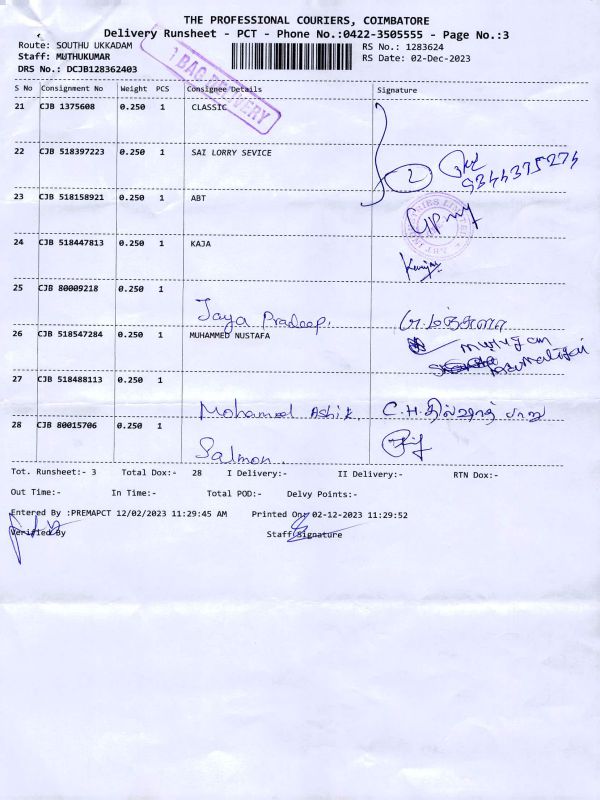 THE PROFESSIONAL COURIERS, COIMBATORE
Delivery Runsheet - PCT - Phone No.:0422-3505555 - Page No.:3
Route: SOUTHU UKKADAM RS No.: 1283624
Staff: MUTHUKUMAR RS Date: 02-Dec-2023
DRS No.: DCJB128362403
BAG DELIVERY
S No Consignment No Weight PCS Consignee Details Signature
21 CJB 1375608 0.250 1 CLASSIC
22 CJB 518397223 0.250 1 SAI LORRY SEVICE
2 9344375274
23 CJB 518158921 0.250 1 ABT
24 CJB 518447813 0.250 1 KAJA
25 CJB 80009218 0.250 1
Jaya Pradeep.
26 CJB 518547284 0.250 1 MUHAMMED NUSTAFA
27 CJB 518488113 0.250 1
Mohamed Ashik C.H.
28 CJB 80015706 0.250 1
Salmon.
Tot. Runsheet:- 3 Total Dox:- 28 I Delivery:- II Delivery:- RTN Dox:-
Out Time:- In Time:- Total POD:- Delvy Points:-
Entered By :PREMAPCT 12/02/2023 11:29:45 AM Printed On: 02-12-2023 11:29:52
Verified By Staff Signature